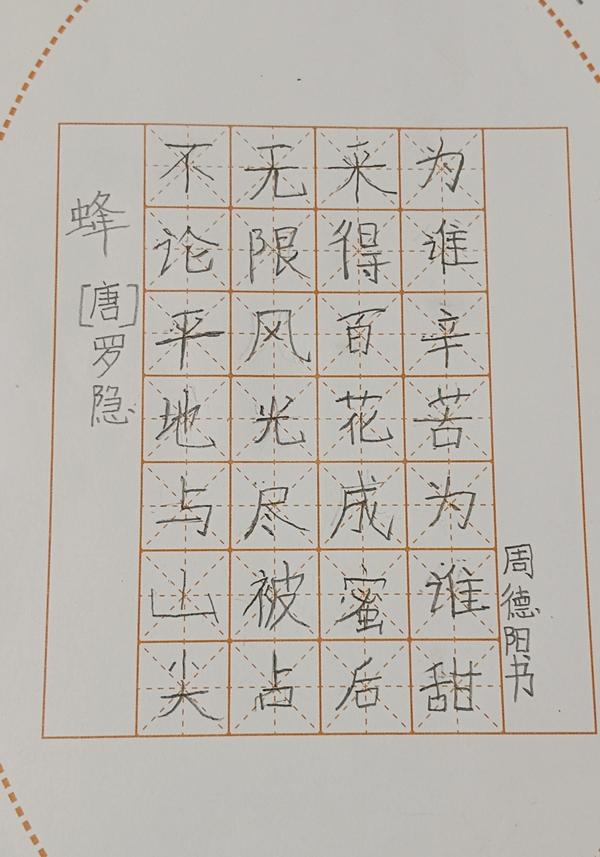 蜂
[唐]罗隐
不论平地与山尖
无限风光尽被占
采得百花成蜜后
为谁辛苦为谁甜
周德阳书